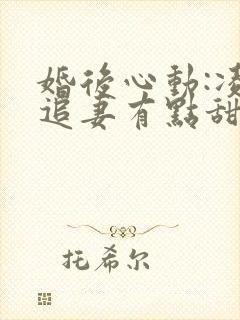 婚後心動:凌
追妻有點甜
托希尔